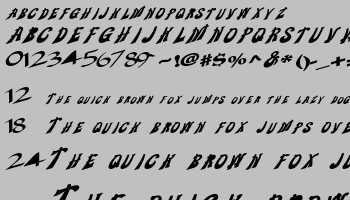 ABCDEFGHIJKLMNOPQRSTUVWXYZ
ABCDEFGHIJKLMNOPQRSTUVW
0123456789 ~!@#$%^&*()-_+
12 THE QUICK BROWN FOX JUMPS OVER THE LAZY DOG
18 THE QUICK BROWN FOX JUMPS OVE
24 THE QUICK BROWN FOX J
THE QUICK BROW